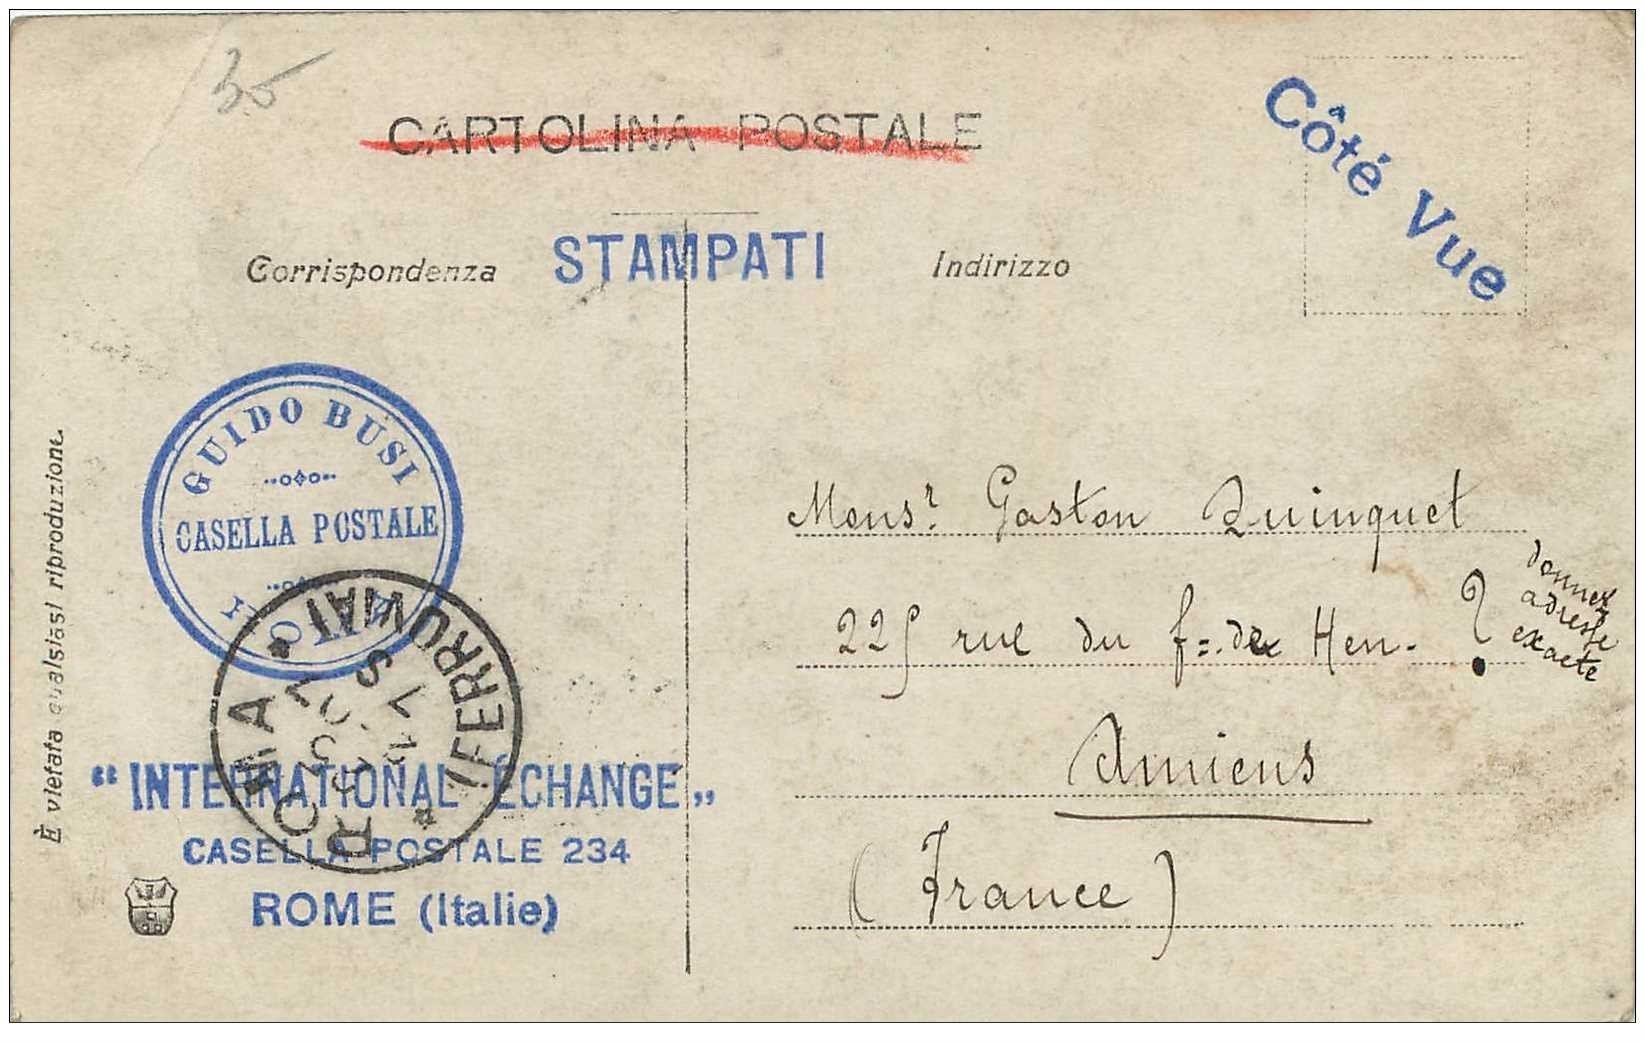 35
CARTOLINA POSTALE
Côté Vue
Corrispondenza
STAMPATI
Indirizzo
GUIDO BUSI
CASELLA POSTALE
ROMA
ROMA
(FERROVIA)
"INTERNATIONAL ÉCHANGE„
CASELLA POSTALE 234
ROME (Italie)
È vietata qualsiasi riproduzione.
Monsr. Gaston Quinquet
225 rue du f=. de Hen- ?
donnez
adresse
exacte
Amiens
(France)